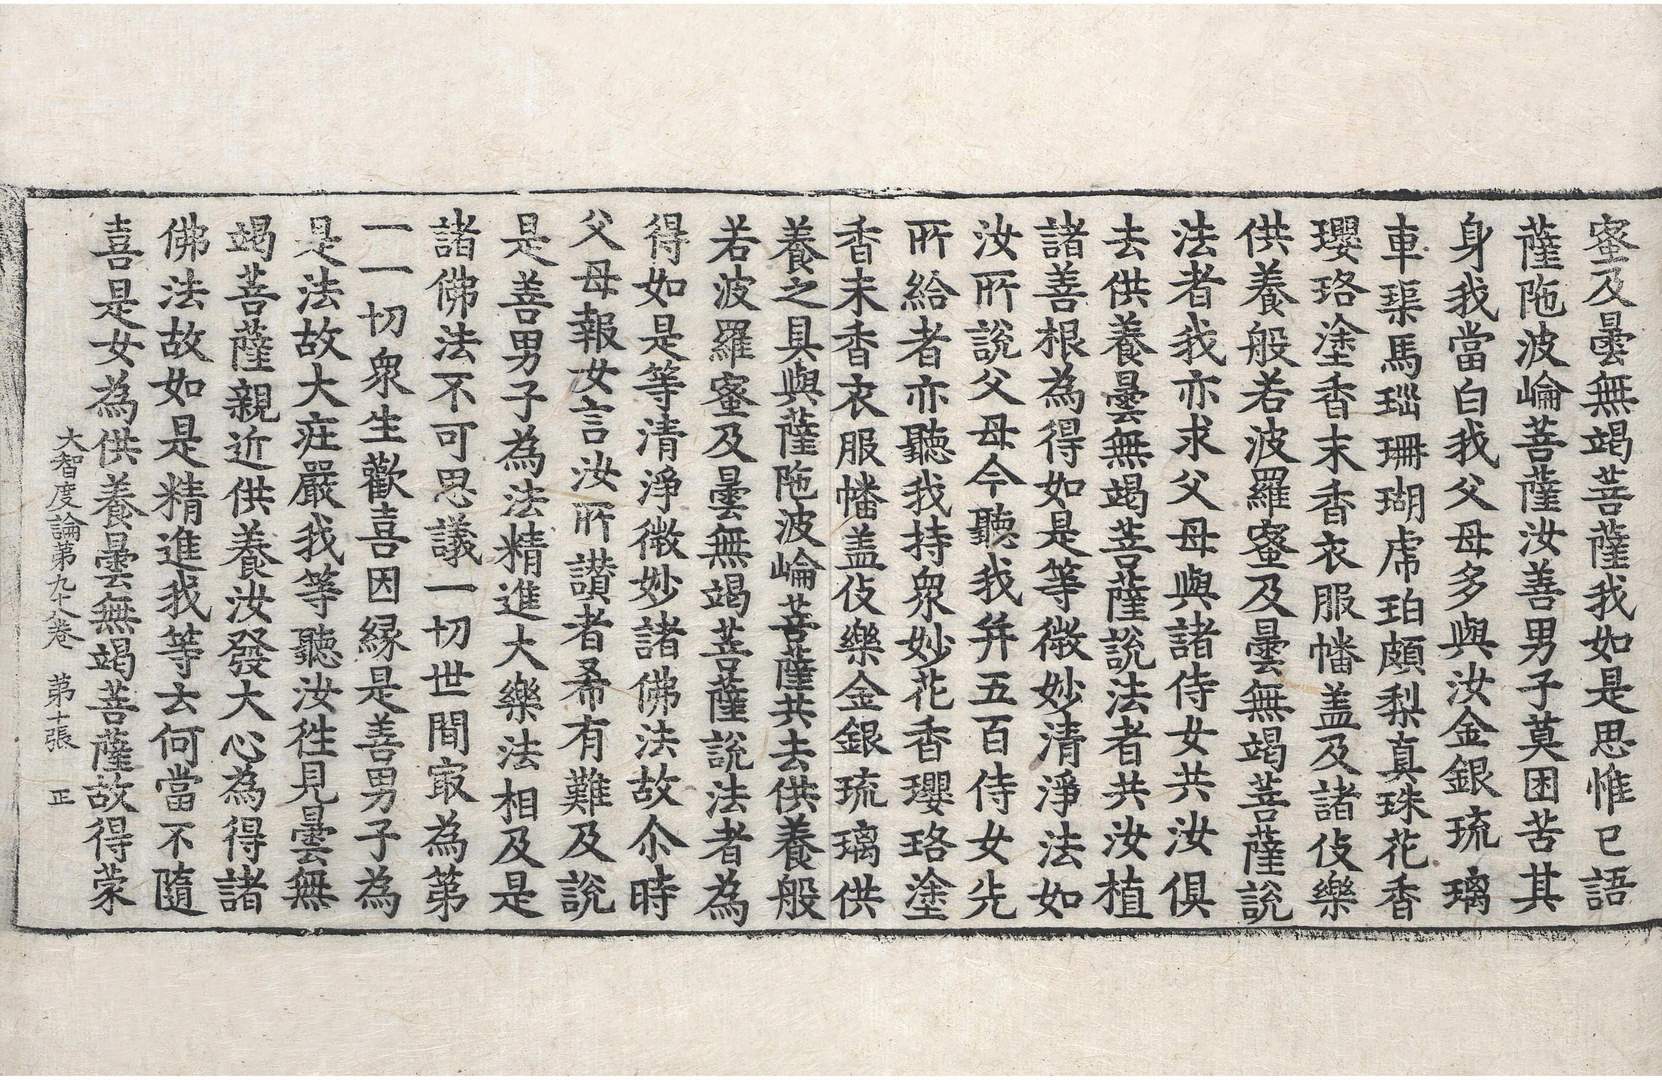 蜜及曇無竭菩薩我如是思惟已語
薩陁波崘菩薩汝善男子莫困苦其
身我當白我父母多與汝金銀琉璃
車𤦲馬瑙珊瑚虎珀頗梨真珠花香
瓔珞塗香末香衣服幡盖及諸伎樂
供養般若波羅蜜及曇無竭菩薩說
法者我亦求父母與諸侍女共汝俱
去供養曇無竭菩薩說法者共汝植
諸善根為得如是等微妙清淨法如
汝所說父母今聽我并五百侍女先
所給者亦聽我持衆妙花香瓔珞塗
香末香衣服幡盖伎樂金銀琉璃供
養之具與薩陁波崘菩薩共去供養般
若波羅蜜及曇無竭菩薩說法者為
得如是等清淨微妙諸佛法故尒時
父母報女言汝所讃者希有難及說
是善男子為法精進大樂法相及是
諸佛法不可思議一切世間㝡為第
一一切衆生歡喜因緣是善男子為
是法故大疘嚴我等聽汝徃見曇無
竭菩薩親近供養汝發大心為得諸
佛法故如是精進我等云何當不隨
喜是女為供養曇無竭菩薩故得蒙
大智度論第九十八卷　第十張　正